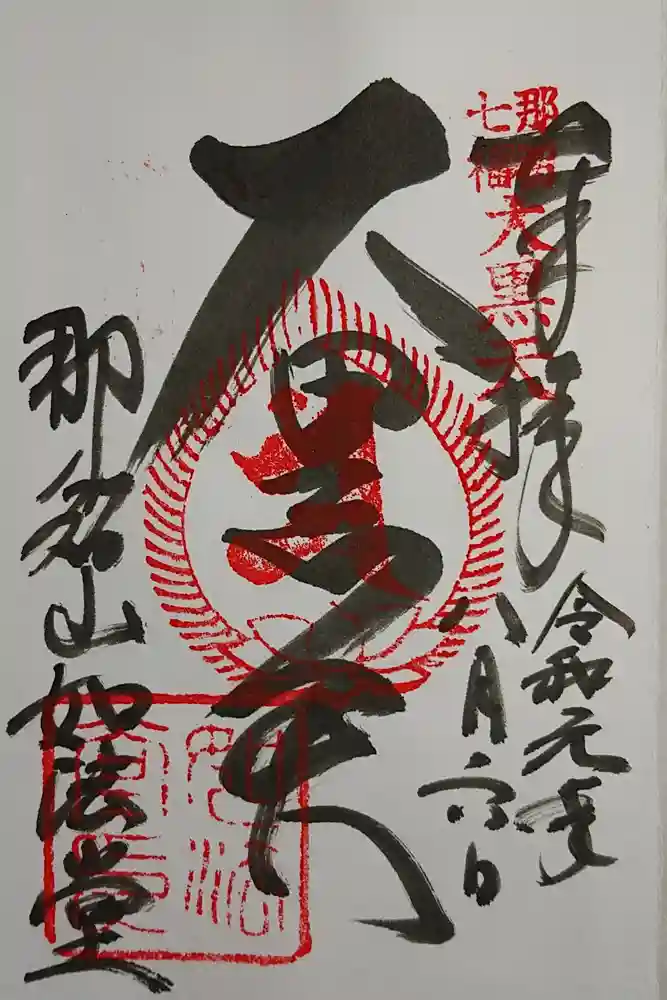 那智
七福
大黒天
奉拝
令和元年
八月六日
大黒天
那智山如法堂